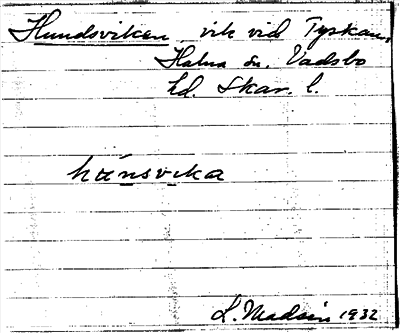 Hundsviken, vik vid Tyskan,
Halna sn. Vadsbo
hd. Skar. l.
húnsvika
L. Madsén 1932